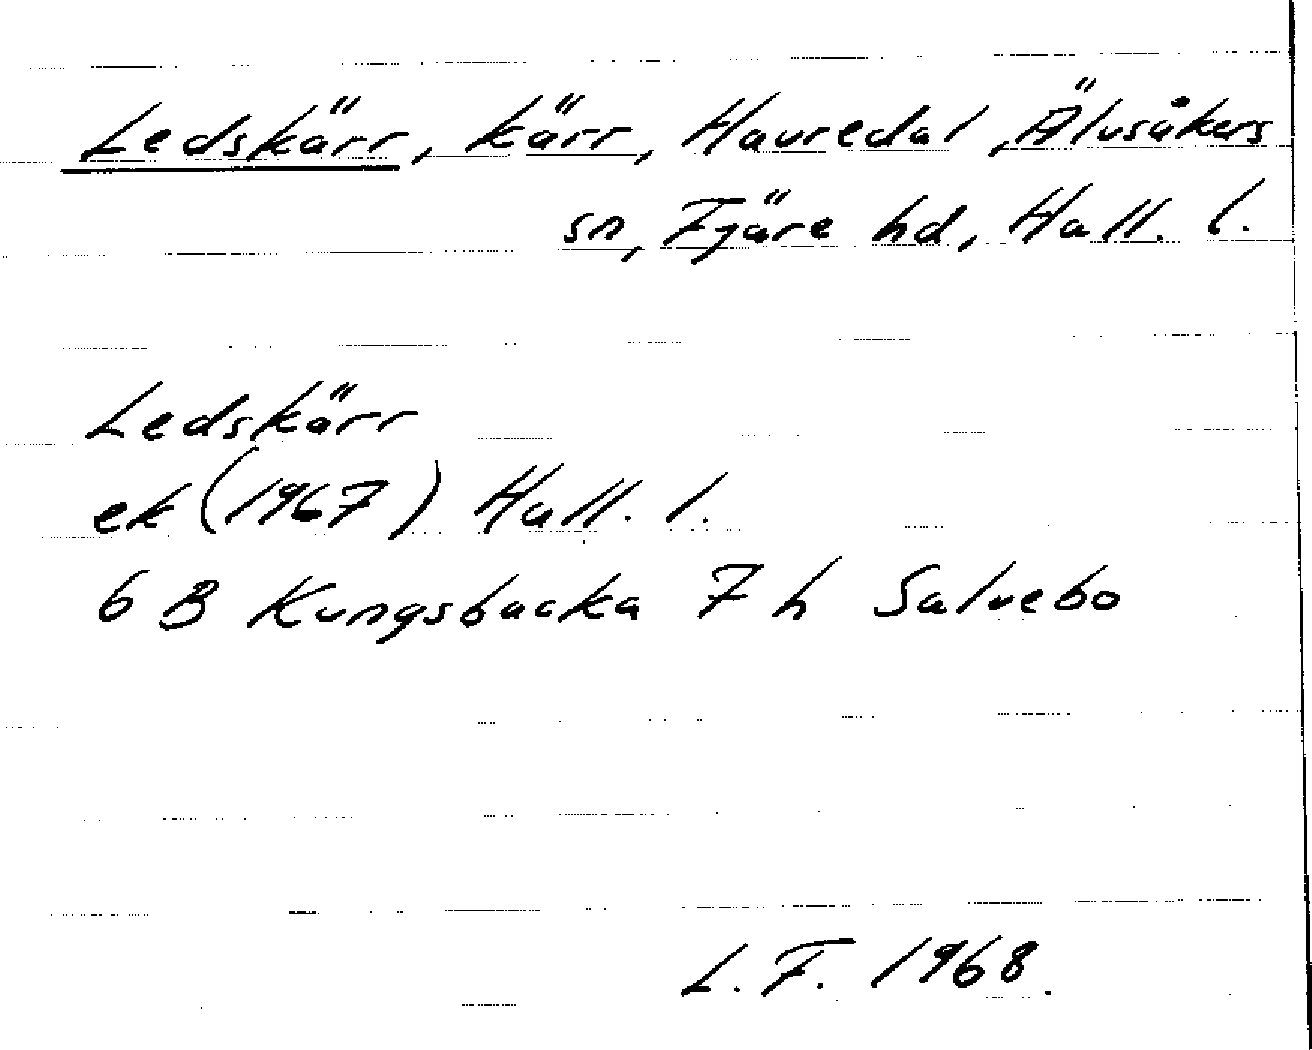 Ledskärr, kärr, Hauredal, Älvsåkers
sn, Fjäre hd, Hall. l.
Ledskärr
ek (1967) Hall. l.
6 B Kungsbacka 7 h Salvebo
L. F. 1968.